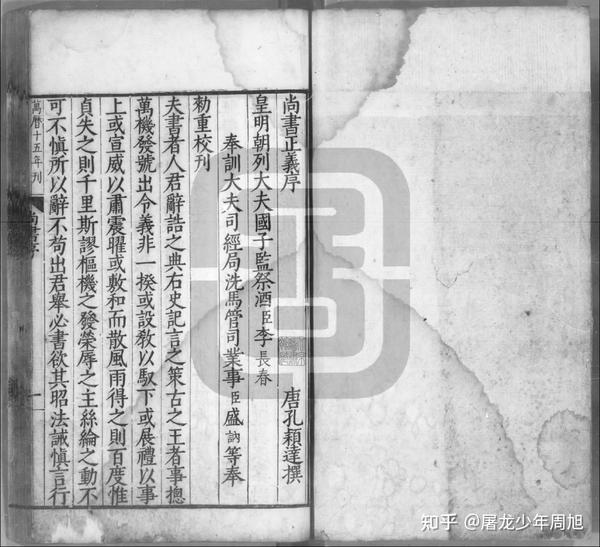 尚書正義序
唐孔穎達撰
皇明朝列大夫國子監祭酒臣李長春
奉訓大夫司經局洗馬管司業事臣盛訥等奉
勑重校刊
夫書者人君辭誥之典右史記言之策古之王者事揔
萬機發號出令義非一揆或設敎以馭下或展禮以事
上或宣威以肅震曜或敷和而散風雨得之則百度惟
貞失之則千里斯謬樞機之發榮辱之主絲綸之動不
可不愼所以辭不苟出君舉必書欲其昭法誡愼言行
萬曆十五年刊
尚書序
一
知乎 @屠龙少年周旭